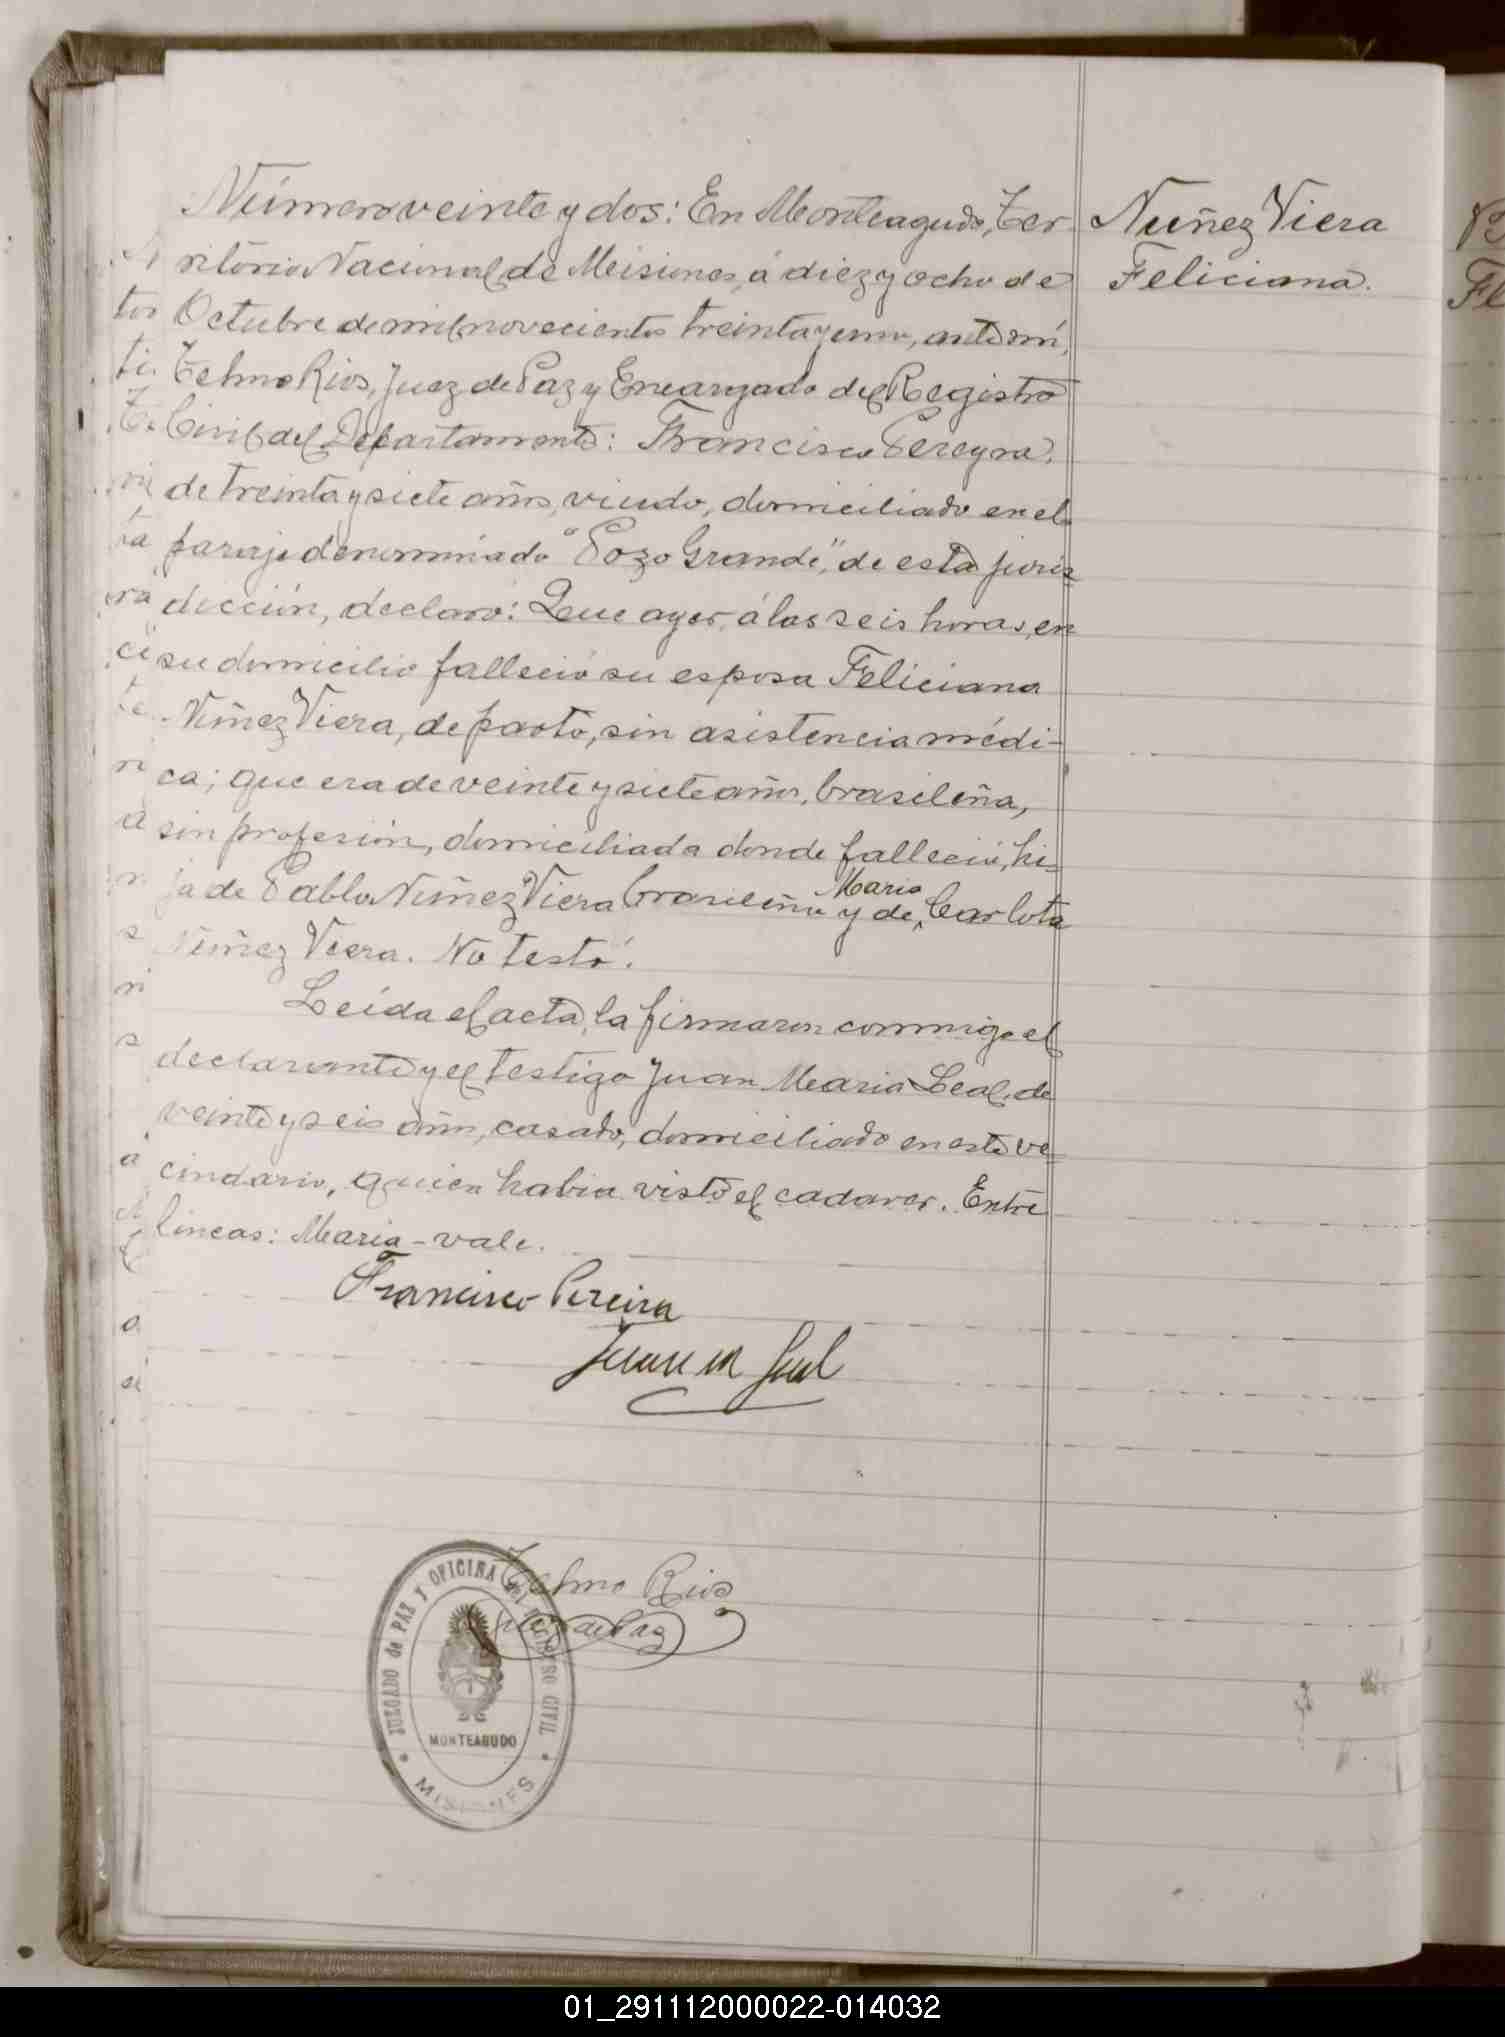 Número veinte y dos: En Monteagudo, Ter
ritorio Nacional de Misiones, á diez y ocho de
Octubre de mil novecientos treinta y uno, ante mí,
Telmo Rios, Juez de Paz y Encargado del Registro
Civil del Departamento: Francisco Pereyra,
de treinta y siete años, viudo, domiciliado en el
paraje denominado "Pozo Grande", de esta juris
dicción, declaró: Que ayer, á las seis horas, en
su domicilio falleció su esposa Feliciana
Nuñez Viera, de parto, sin asistencia médi-
ca; que era de veinte y siete años, brasileña,
sin profesión, domiciliada donde falleció, hi-
ja de Pablo Nuñez Viera brasileño y de Maria Carlota
Nuñez Viera. No testó.
Leída el acta, la firmaron conmigo el
declarante y el testigo Juan Maria Leal, de
veinte y seis años, casado, domiciliado en este ve-
cindario, quien habia visto el cadaver. Entre
lineas: Maria - vale.
Francisco Pereira
Juan M Leal
Telmo Rios
Juez de Paz
JUZGADO de PAZ Y OFICINA del REGISTRO CIVIL
MONTEAGUDO
MISIONES
Nuñez Viera
Feliciana.
01_291112000022-014032